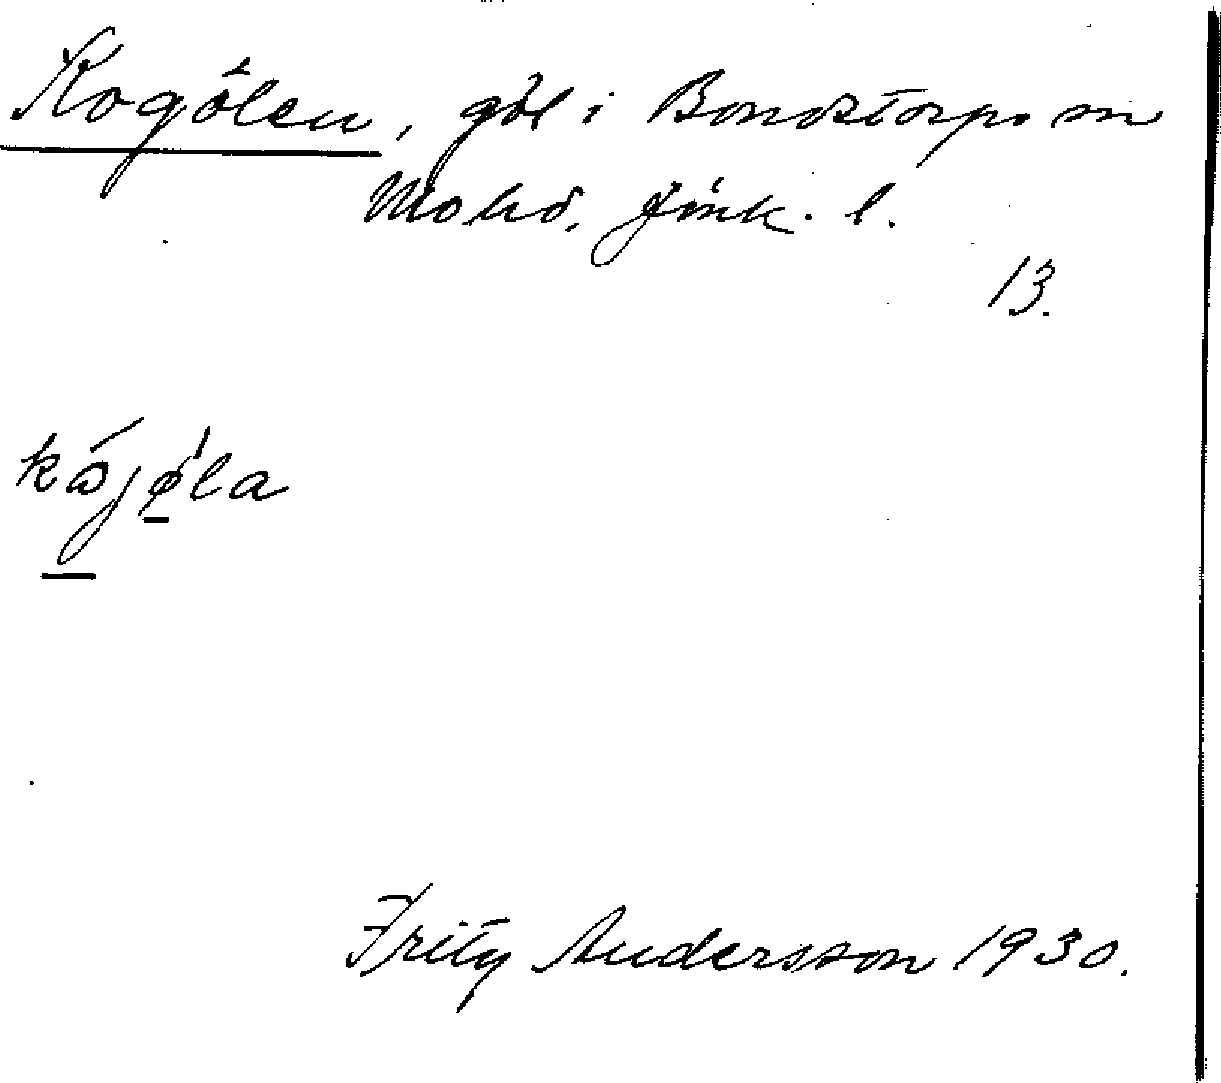 Kogölen, göl i Bondstorps sn
Mo hd, Jönk. l.
13.
kájǿla
Fritz Andersson 1930.